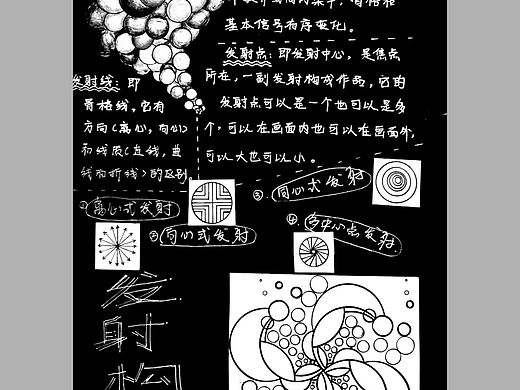 基本信号有序变化。
发射点:即发射中心,是焦点
所在,一副发射构成作品,它的
发射点可以是一个也可以是多
个,可以在画面内也可以在画面外,
可以大也可以小。
发射线:即
骨格线,它有
方向(离心,向心)
和线质(直线,曲
线和折线)的区别。
①离心式发射
②向心式发射
③同心式发射
④多中心点发射
发
射
构